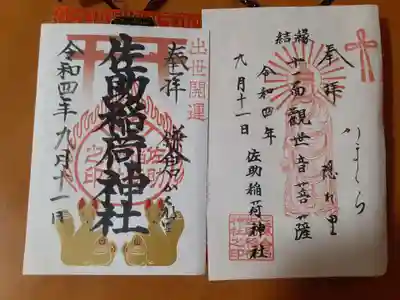 出世開運
奉拝
鎌倉かくれ里
佐助稲荷神社
令和四年九月十一日
結縁
かまくら
奉拝
隠れ里
十一面觀世音菩薩
令和四年
九月十一日
佐助稲荷神社